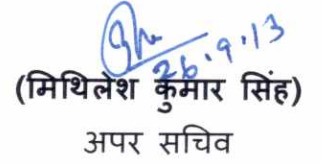 26.9.13
(मिथिलेश कुमार सिंह)
अपर सचिव